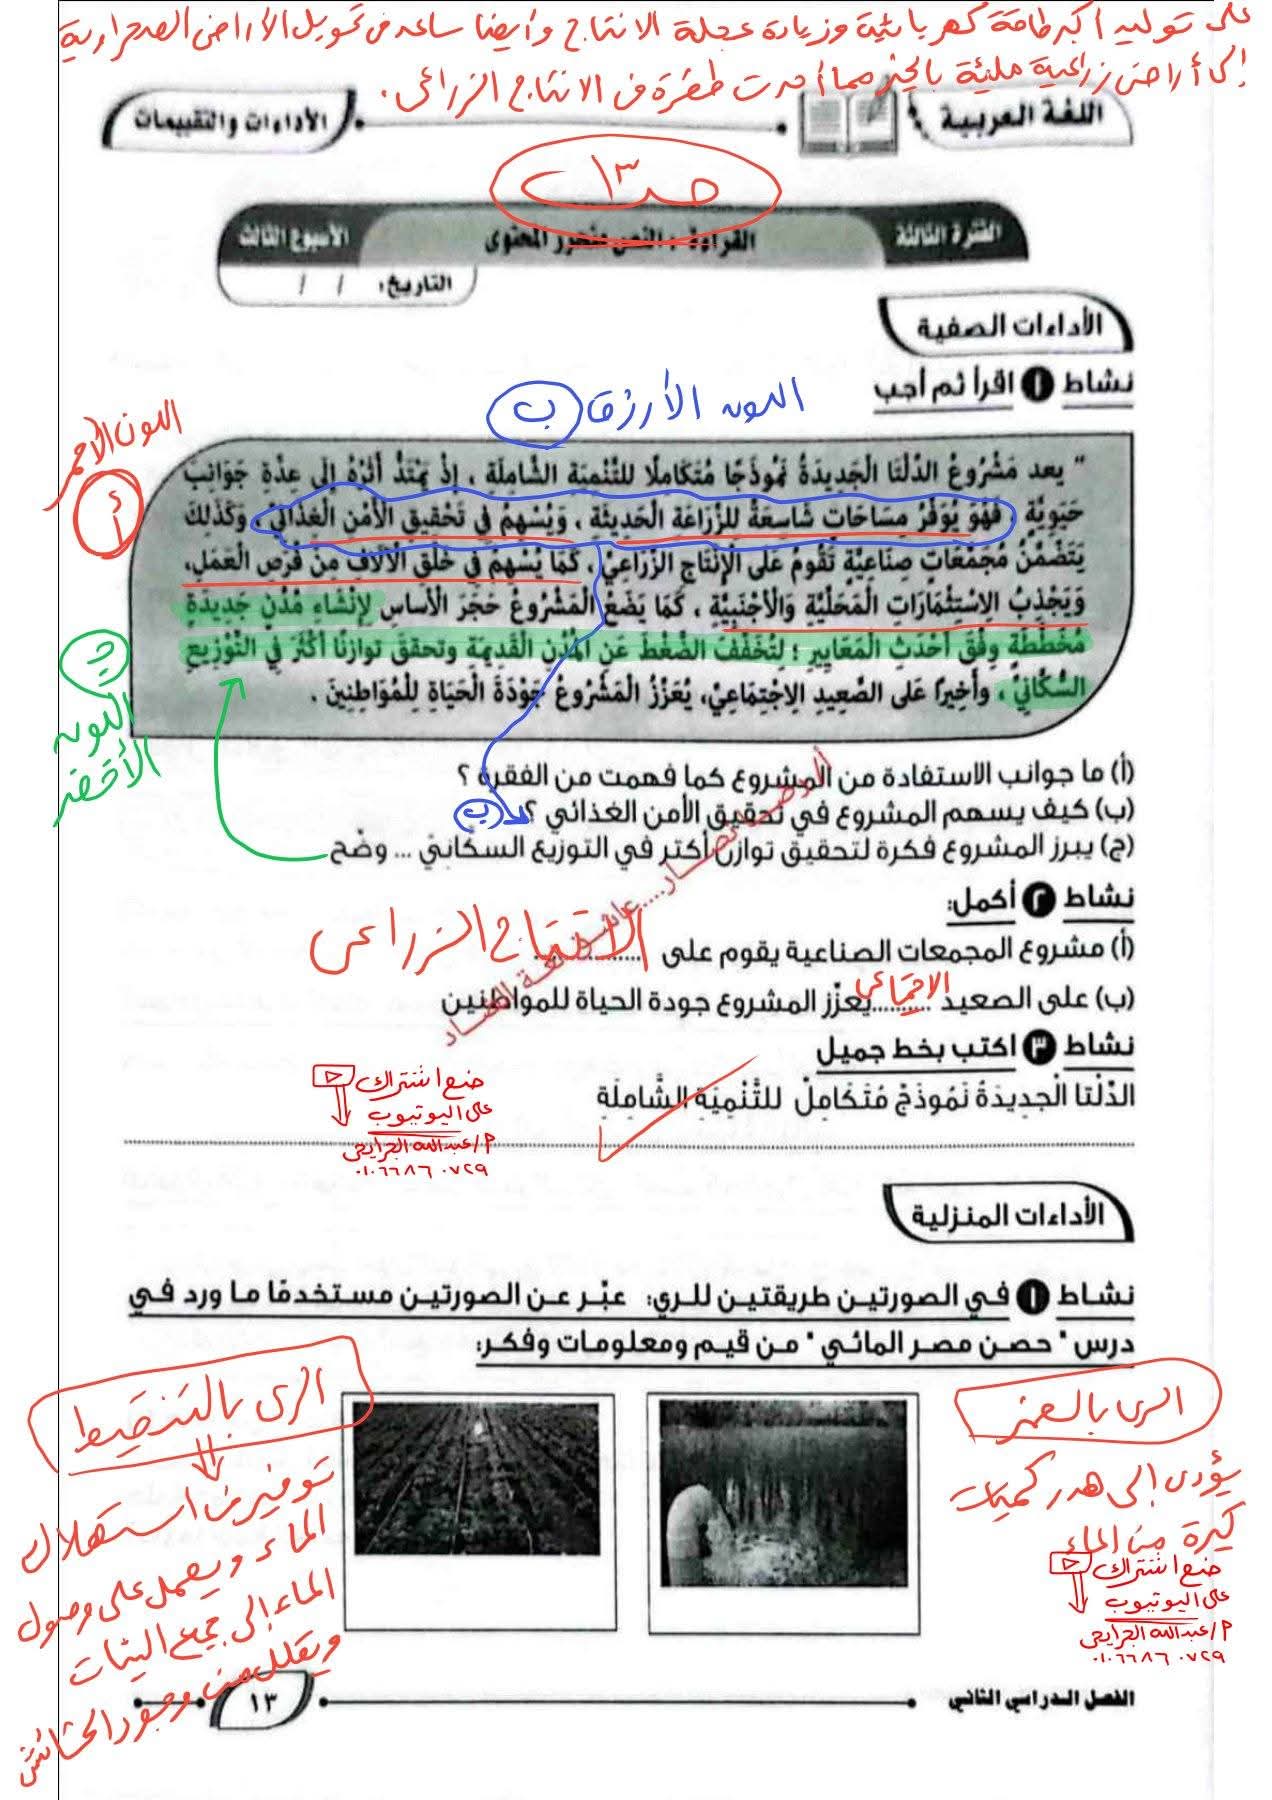 على توليد أكبر طاقة كهربائية وزيادة عجلة الانتاج وأيضا ساعد فى تحويل الأراضى الصحراوية
إلى أراضى زراعية مليئة بالخير مما أحدث طفرة فى الانتاج الزراعى .
اللغة العربية
الأداءات والتقييمات
صـ ١٣
الفترة الثالثة
القراءة : النص متحرر المحتوى
الأسبوع الثالث
التاريخ: / /
الأداءات الصفية
نشاط ١ اقرأ ثم أجب
اللون الأزرق ب
اللون الأحمر
أ
" يعد مَشْرُوعُ الدِّلْتَا الْجَدِيدَةُ نَمُوذَجًا مُتَكَامِلًا للتَّنْمِيَةِ الشَّامِلَةِ ، إِذْ يَمْتَدُّ أَثَرُهُ إِلَى عِدَّةِ جَوَانِبَ
حَيَوِيَّةٍ ، فَهُوَ يُوَفِّرُ مِسَاحَاتٍ شَاسِعَةً لِلزِّرَاعَةِ الْحَدِيثَةِ ، وَيُسْهِمُ فِي تَحْقِيقِ الْأَمْنِ الْغِذَائِيِّ ، وَكَذَلِكَ
يَتَضَمَّنُ مُجَمَّعَاتٍ صِنَاعِيَّةً تَقُومُ عَلَى الْإِنْتَاجِ الزِّرَاعِيِّ ، كَمَا يُسْهِمُ فِي خَلْقِ الْآلَافِ مِنْ فُرَصِ الْعَمَلِ،
وَيَجْذِبُ الِاسْتِثْمَارَاتِ الْمَحَلِّيَّةِ وَالْأَجْنَبِيَّةِ ، كَمَا يَضَعُ الْمَشْرُوعُ حَجَرَ الْأَسَاسِ لِإِنْشَاءِ مُدُنٍ جَدِيدَةٍ
مُخَطَّطَةٍ وِفْقَ أَحْدَثِ الْمَعَايِيرِ ؛ لِتُخَفِّفَ الضَّغْطَ عَنِ الْمُدُنِ الْقَدِيمَةِ وتحقق توازنًا أَكْثَرَ فِي التَّوْزِيعِ
السُّكَّانِيِّ ، وأَخِيرًا عَلَى الصَّعِيدِ الِاجْتِمَاعِيِّ، يُعَزِّزُ الْمَشْرُوعُ جَوْدَةَ الْحَيَاةِ لِلْمُوَاطِنِينَ .
اللون
الأخضر
(أ) ما جوانب الاستفادة من المشروع كما فهمت من الفقرة ؟
(ب) كيف يسهم المشروع في تحقيق الأمن الغذائي ؟ ب
(ج) يبرز المشروع فكرة لتحقيق توازن أكثر في التوزيع السكَّانيّ ... وضّح
نشاط ٢ أكمل:
(أ) مشروع المجمعات الصناعية يقوم على .............. الانتاج الزراعى
(ب) على الصعيد .......... الاجتماعى يعزّز المشروع جودة الحياة للمواطنين
نشاط ٣ اكتب بخط جميل
الدِّلْتَا الْجَدِيدَةُ نَمُوذَجٌ مُتَكَامِلٌ للتَّنْمِيَةِ الشَّامِلَةِ
ضع اشتراك
على اليوتيوب
م/عبدالله الجرايحى
٠١٠٦٦٨٦٠٧٢٩
الأداءات المنزلية
نشاط ١ في الصورتين طريقتين للري: عبّر عن الصورتين مستخدمًا ما ورد في
درس " حصن مصر المائي " من قيم ومعلومات وفكر:
الرى بالغمر
يؤدى إلى هدر كميات
كبيرة من الماء
الرى بالتنقيط
توفير فى استهلاك
الماء ويعمل على وصول
الماء إلى جميع النباتات
ويقلل من وجود الحشائش
ضع اشتراك
على اليوتيوب
م/عبدالله الجرايحى
٠١٠٦٦٨٦٠٧٢٩
الفصل الدراسي الثاني
١٣